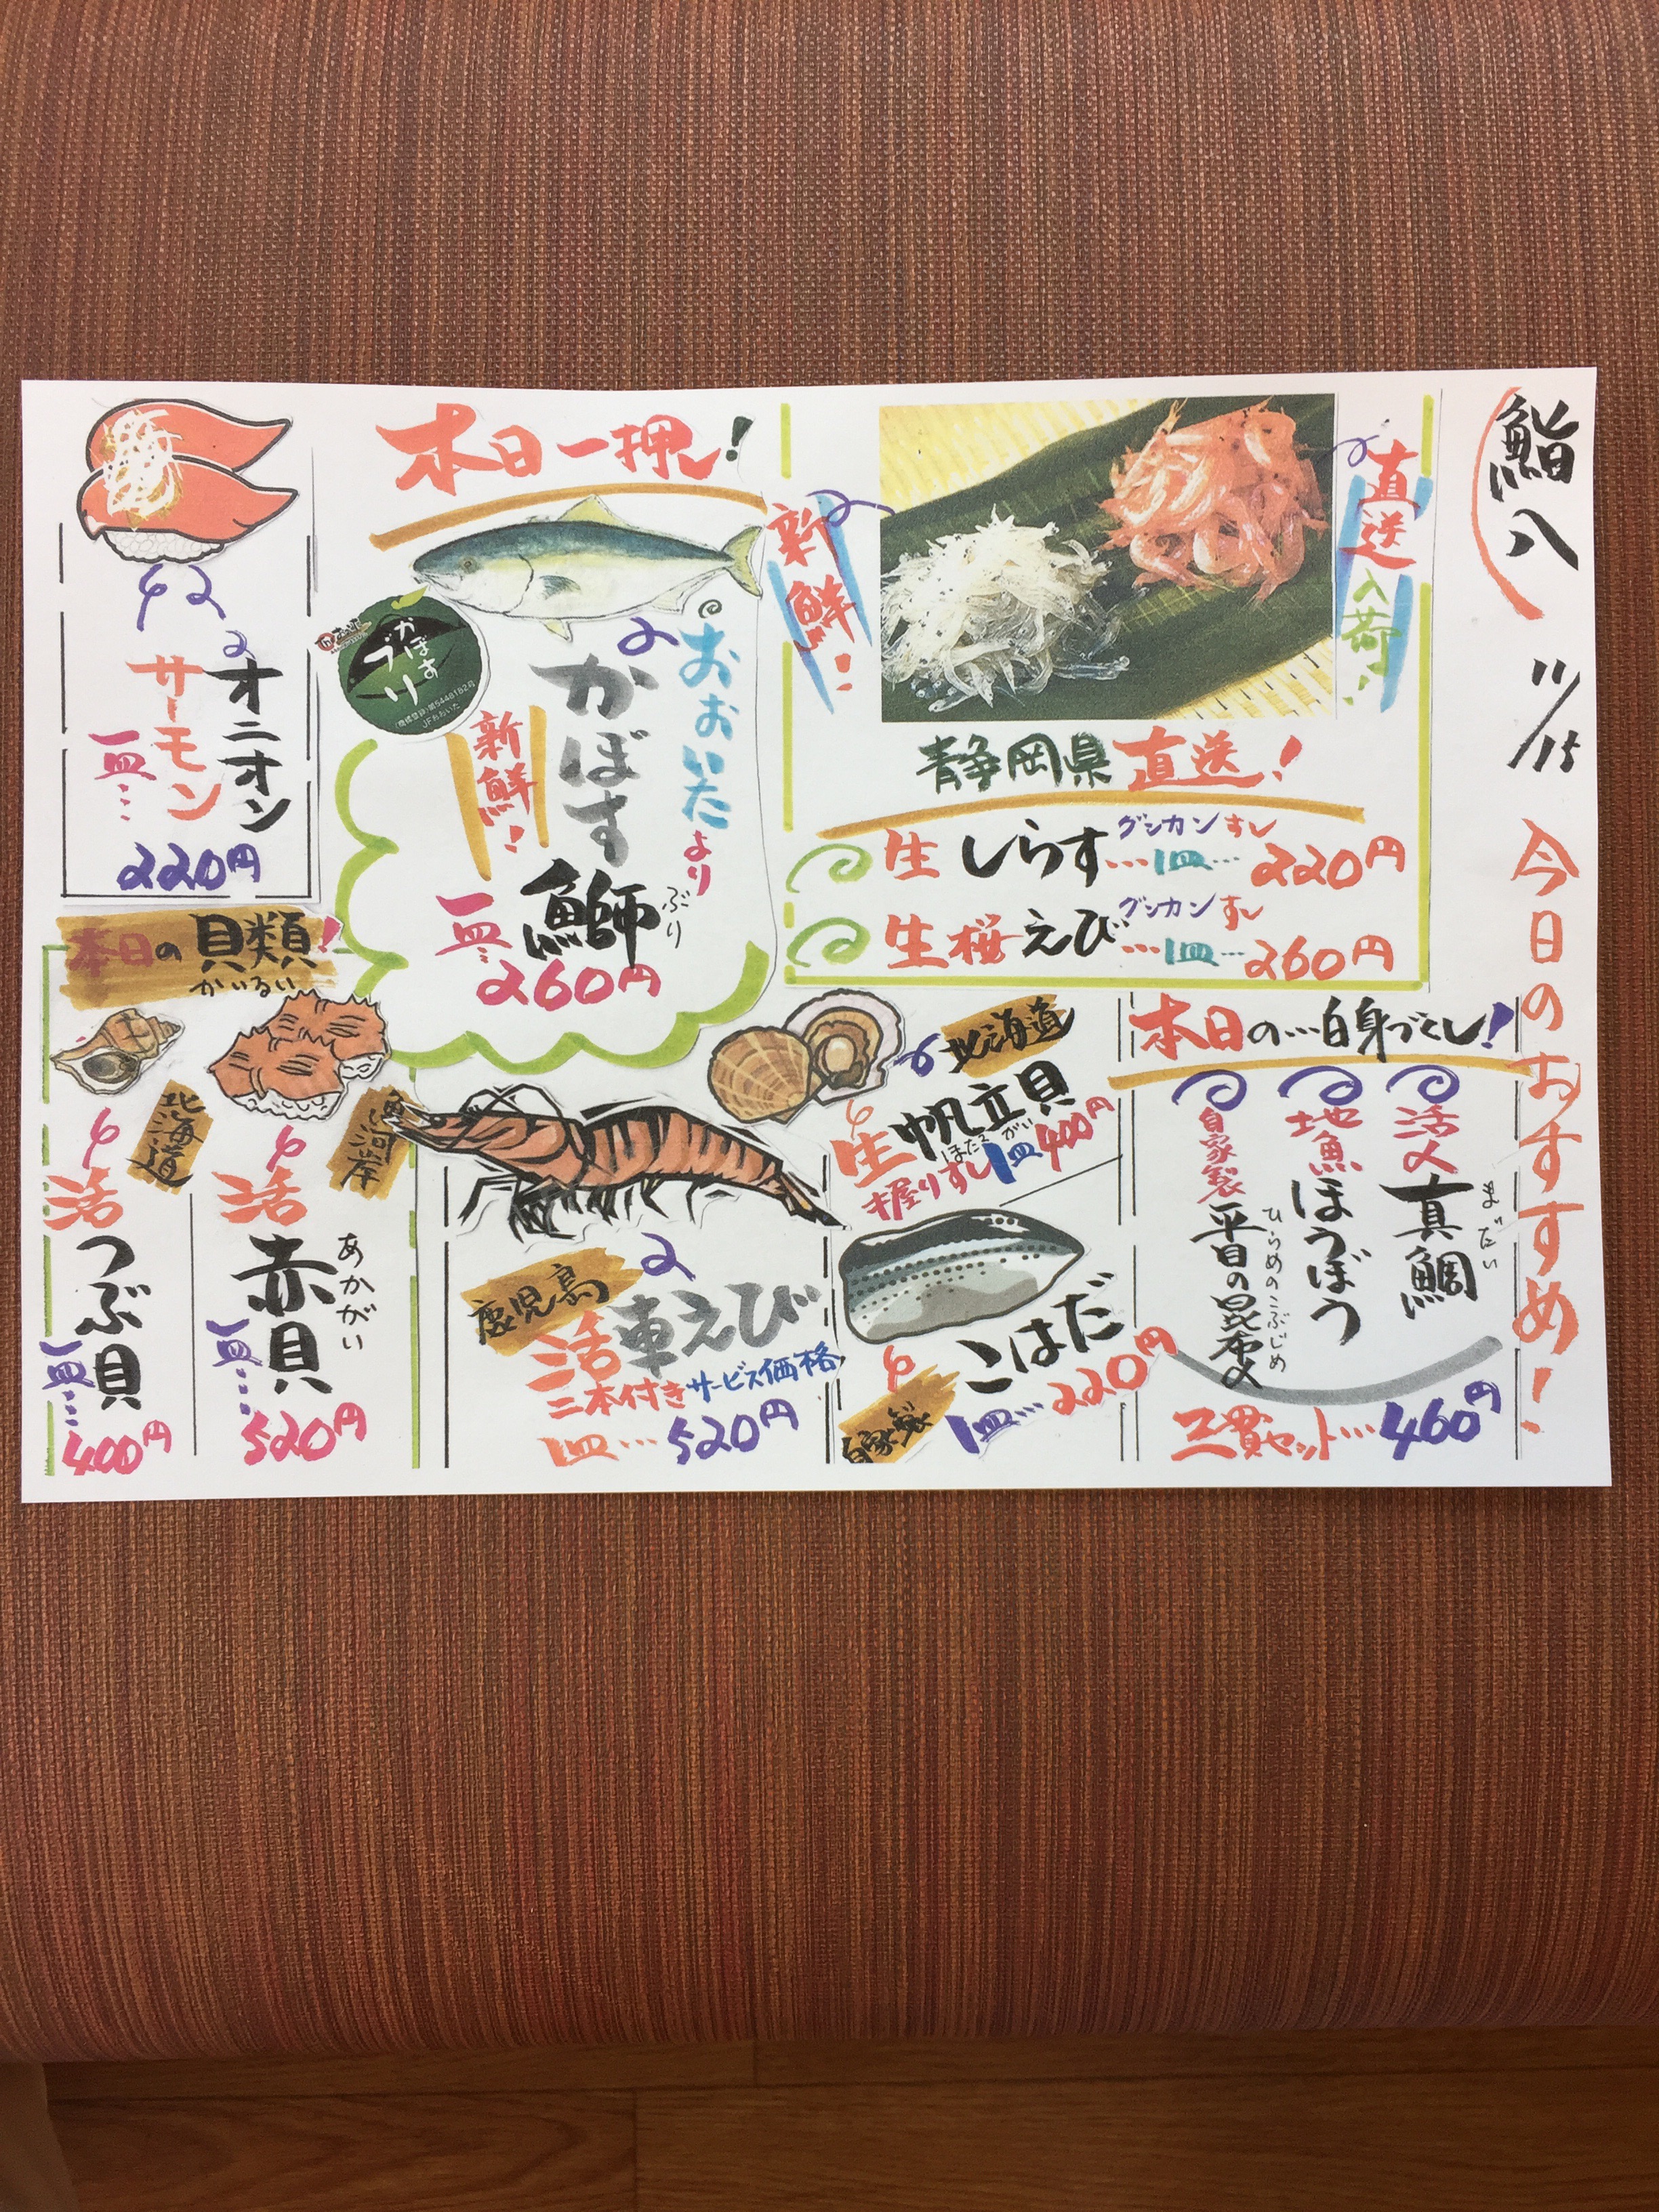 鮨八
11/15
今日のおすすめ!
直送
入荷!
新鮮!
静岡県直送!
生しらすグンカンすし…1皿…220円
生桜えびグンカンすし…1皿…260円
本日一押し!
かぼす
ブリ
(商標登録)第5448182号
JFおおいた
おおいたより
かぼす鰤
ぶり
新鮮!
一皿…
260円
オニオン
サーモン
一皿…
220円
本日の…白身づくし!
活〆
真鯛
まだい
地魚
ほうぼう
自家製
平目の昆布〆
ひらめのこぶじめ
三貫セット…460円
北海道
生帆立貝
ほたてがい
握りすし1皿400円
こはだ
自家製
1皿…220円
鹿児島
活車えび
二本付きサービス価格
1皿…520円
本日の貝類!
かいるい
魚河岸
活
赤貝
あかがい
一皿…
520円
北海道
活
つぶ貝
一皿…
400円